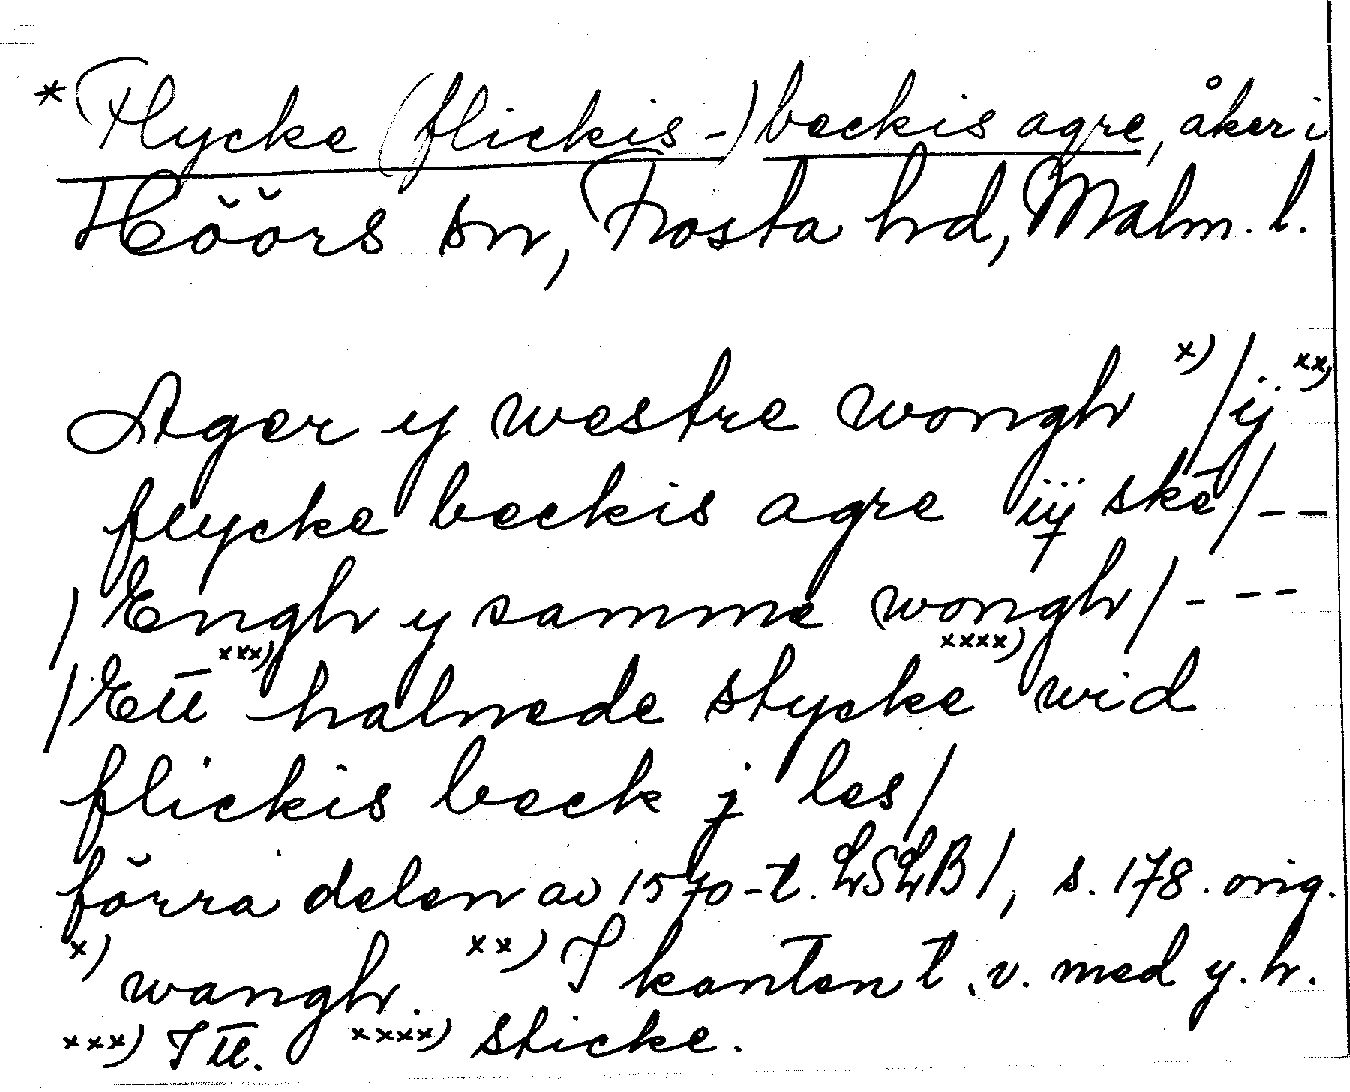 * Flycke (flickis-) beckis agre, åker i
Höörs sn, Frosta hd, Malm. l.
Ager y westre wongh x) / ij xx)
flycke beckis agre iij skē / - -
/ Engh y samme wongh / - - -
/ Ett xxx) halnede stycke xxxx) wid
flickis beck j les /
förra delen av 1570-t. LSLB 1, s. 178. orig.
x) wangh. xx) I kanten t. v. med y. h.
xxx) Itt. xxxx) sticke.